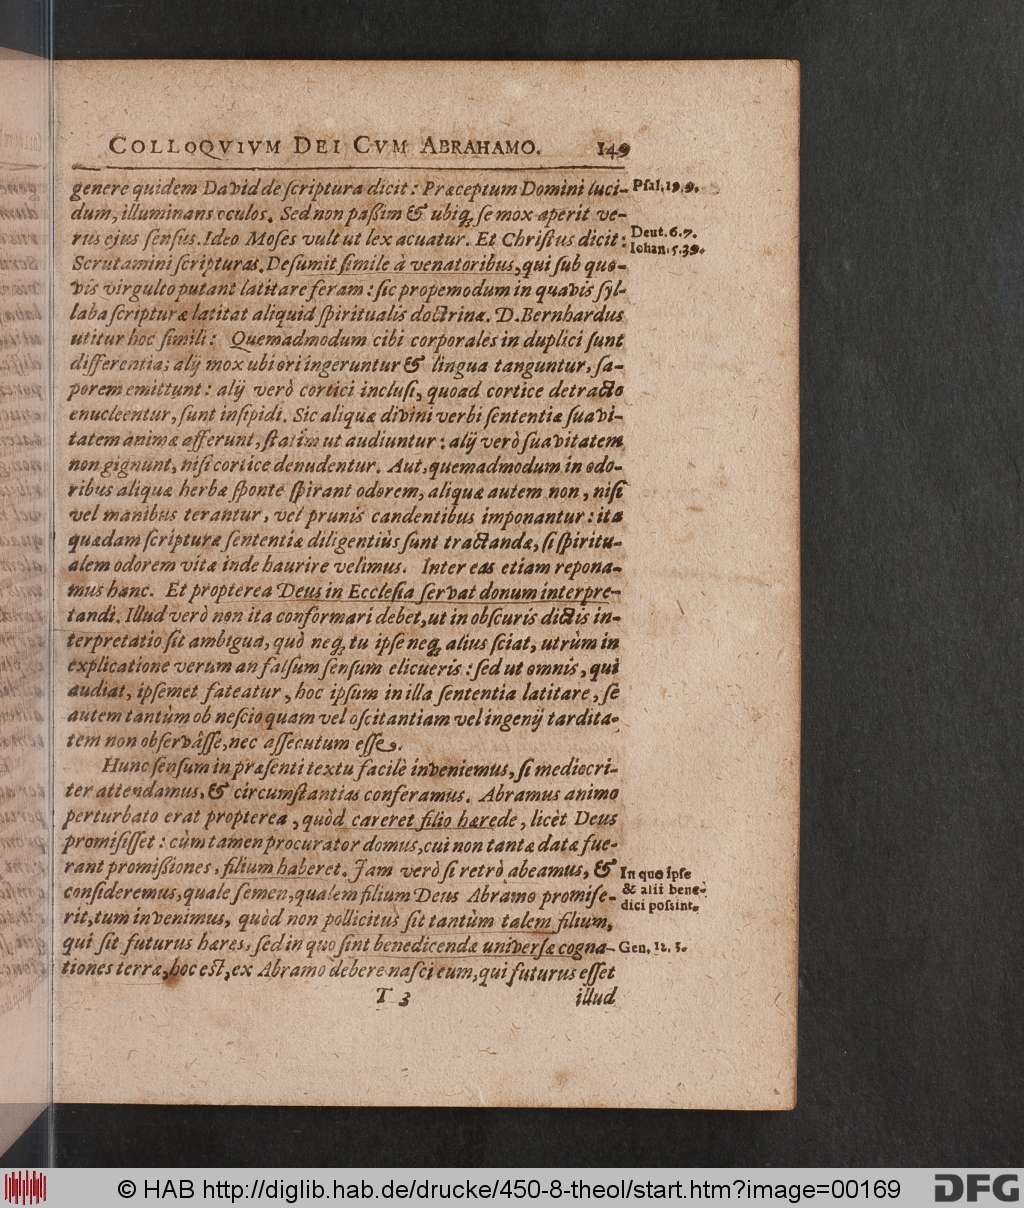 COLLOQVIVM DEI CVM ABRAHAMO. 149
genere quidem David de ſcriptura dicit: Præceptum Domini luci-
Pſal. 19. 9.
dum, illuminans oculos. Sed non paßim & ubiq; ſe mox aperit ve-
rus ejus ſenſus. Ideo Moſes vult ut lex acuatur. Et Chriſtus dicit:
Deut. 6. 7.
Iohan. 5. 39.
Scrutamini ſcripturas. Deſumit ſimile à venatoribus, qui ſub quo-
vis virgulto putant latitare feram: ſic propemodum in quavis ſyl-
laba ſcripturæ latitat aliquid ſpiritualis doctrinæ. D. Bernhardus
utitur hoc ſimili: Quemadmodum cibi corporales in duplici ſunt
differentia; alij mox ubi ori ingeruntur & lingua tanguntur, ſa-
porem emittunt: alij verò cortici incluſi, quoad cortice detracto
enucleentur, ſunt inſipidi. Sic aliquæ divini verbi ſententiæ ſuavi-
tatem animæ afferunt, ſtatim ut audiuntur: alij verò ſuavitatem
non gignunt, niſi cortice denudentur. Aut, quemadmodum in odo-
ribus aliquæ herbæ ſponte ſpirant odorem, aliquæ autem non, niſi
vel manibus terantur, vel prunis candentibus imponantur: ita
quædam ſcripturæ ſententiæ diligentiùs ſunt tractandæ, ſi ſpiritu-
alem odorem vitæ inde haurire velimus. Inter eas etiam repona-
mus hanc. Et propterea Deus in Eccleſia ſervat donum interpre-
tandi. Illud verò non ita conformari debet, ut in obſcuris dictis in-
terpretatio ſit ambigua, quò neq; tu ipſe neq; alius ſciat, utrùm in
explicatione verum an falſum ſenſum elicueris: ſed ut omnis, qui
audiat, ipſemet fateatur, hoc ipſum in illa ſententia latitare, ſe
autem tantùm ob neſcio quam vel oſcitantiam vel ingenij tardita-
tem non obſervâſſe, nec aſſecutum eſſe.
Hunc ſenſum in præſenti textu facilè inveniemus, ſi mediocri-
ter attendamus, & circumſtantias conferamus. Abramus animo
perturbato erat propterea, quòd careret filio hærede, licèt Deus
promiſiſſet: cùm tamen procurator domus, cui non tanta data fue-
rant promißiones, filium haberet. Jam verò ſi retrò abeamus, &
In quo ipſe
& alii bene-
dici poſsint.
conſideremus, quale ſemen, qualem filium Deus Abramo promiſe-
rit, tum invenimus, quòd non pollicitus ſit tantùm talem filium,
qui ſit futurus hæres, ſed in quo ſint benedicendæ univerſæ cogna-
Gen. 12. 3.
tiones terræ, hoc eſt, ex Abramo debere naſci eum, qui futurus eſſet
T 3 illud
© HAB http://diglib.hab.de/drucke/450-8-theol/start.htm?image=00169
DFG